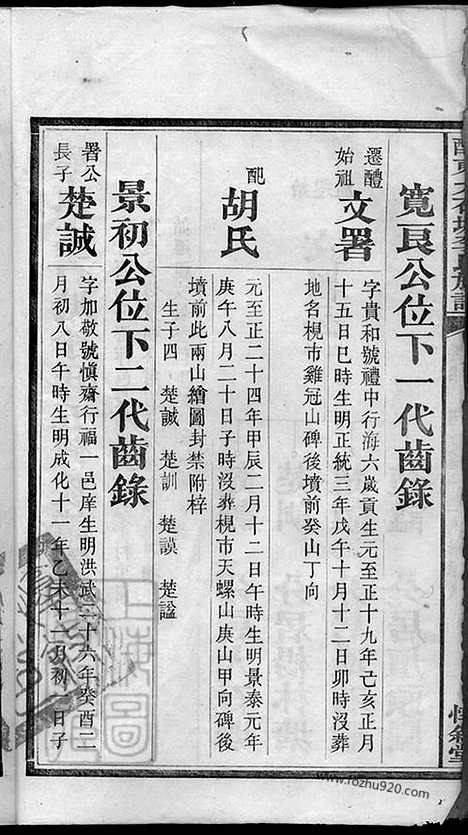 寬良公位下一代齒錄
遷醴
始祖
文署
字貴和號禮中行海六歲貢生元至正十九年己亥正月
十五日巳時生明正統三年戊午十月十二日卯時沒葬
地名梘市雞冠山碑後墳前癸山丁向
配
胡氏
元至正二十四年甲辰二月十二日午時生明景泰元年
庚午八月二十日子時沒葬梘市天螺山庚山甲向碑後
墳前此兩山繪圖封禁附梓
生子四 楚誠 楚訓 楚謨 楚謚
景初公位下二代齒錄
署公
長子
楚誠
字加敬號慎齋行福一邑庠生明洪武二十六年癸酉二
月初八日午時生明成化十一年乙未十二月初一日子
上海圖
www.rozhu920.com